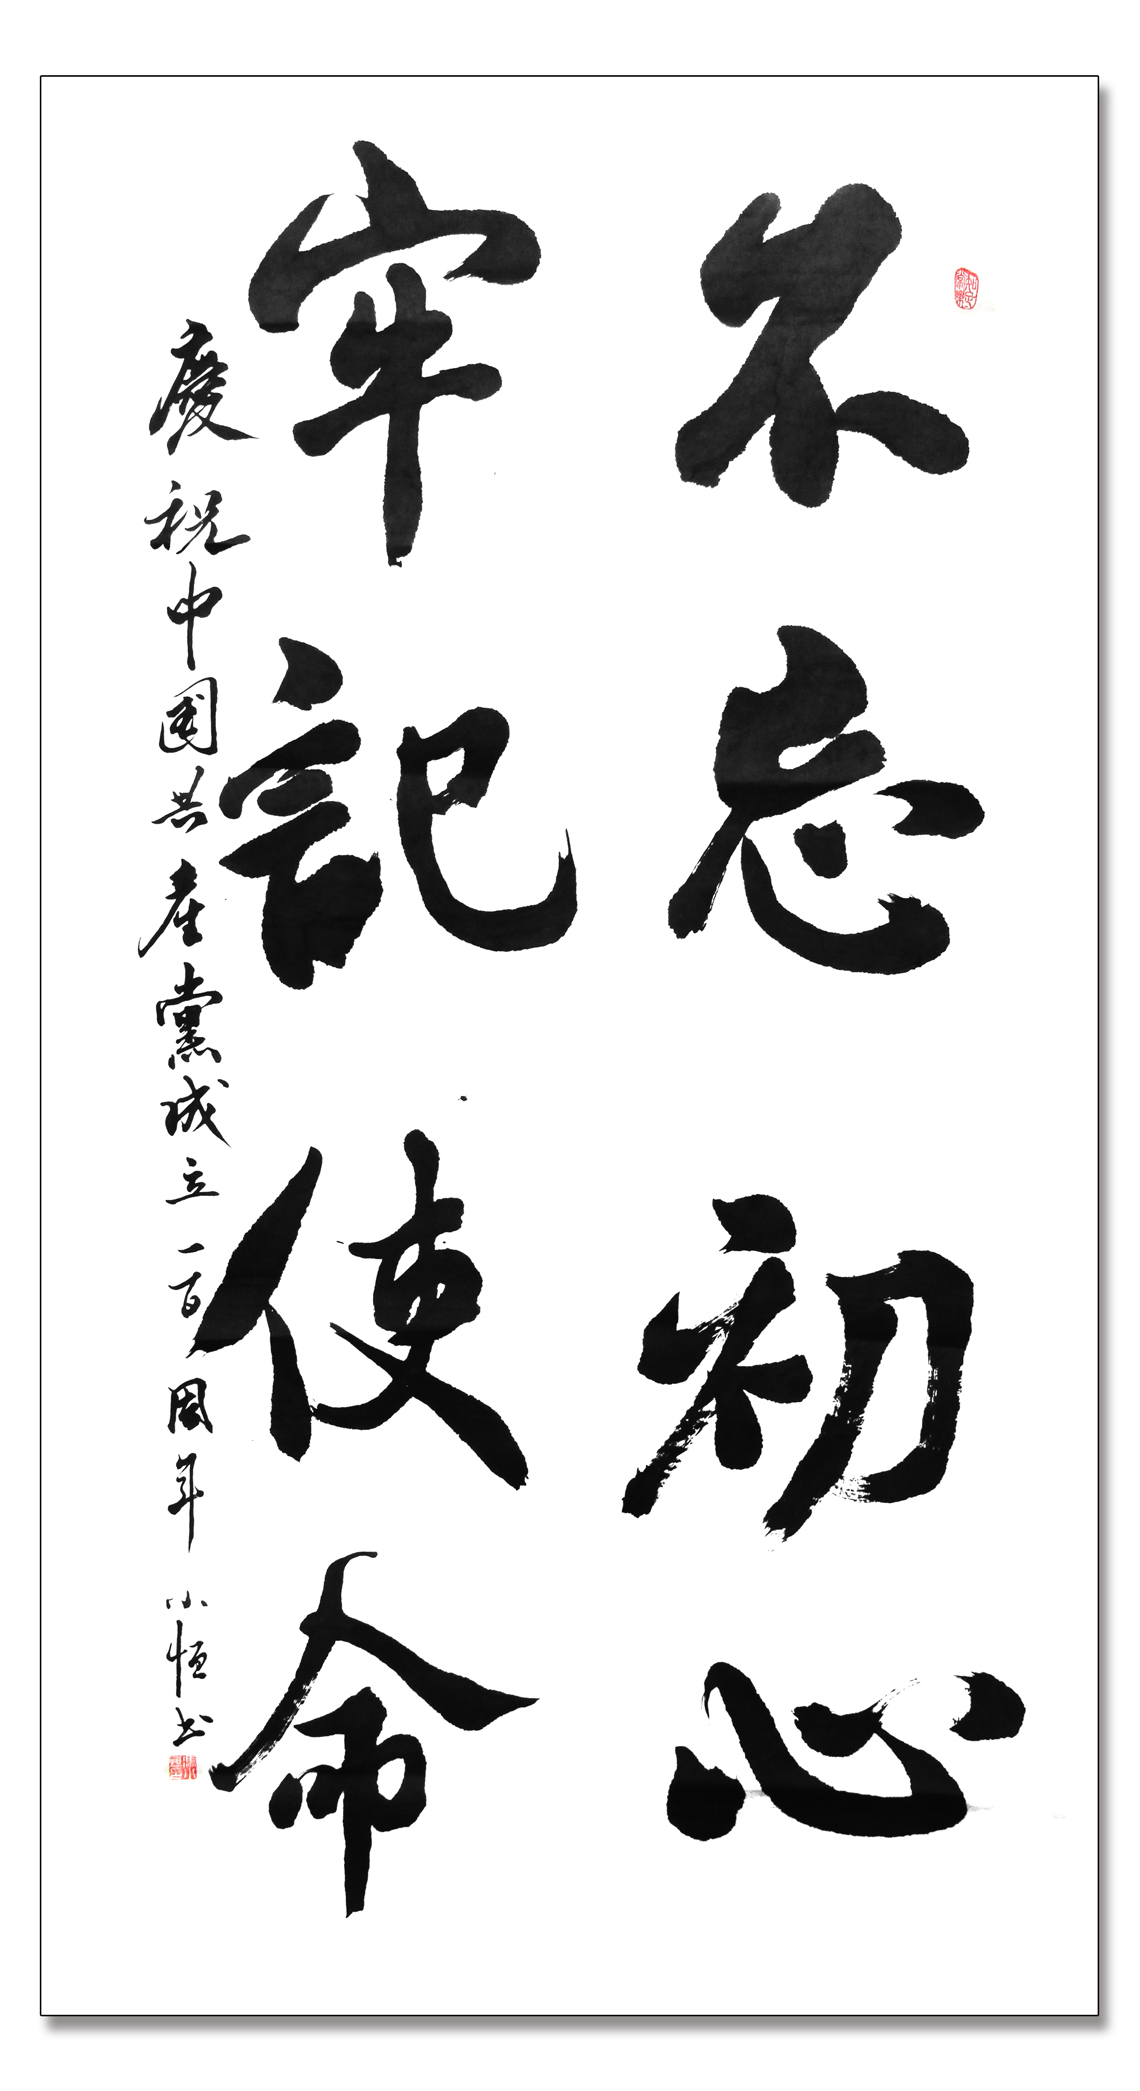 不忘初心
牢記使命
慶祝中國共產黨成立一百周年 小恒书